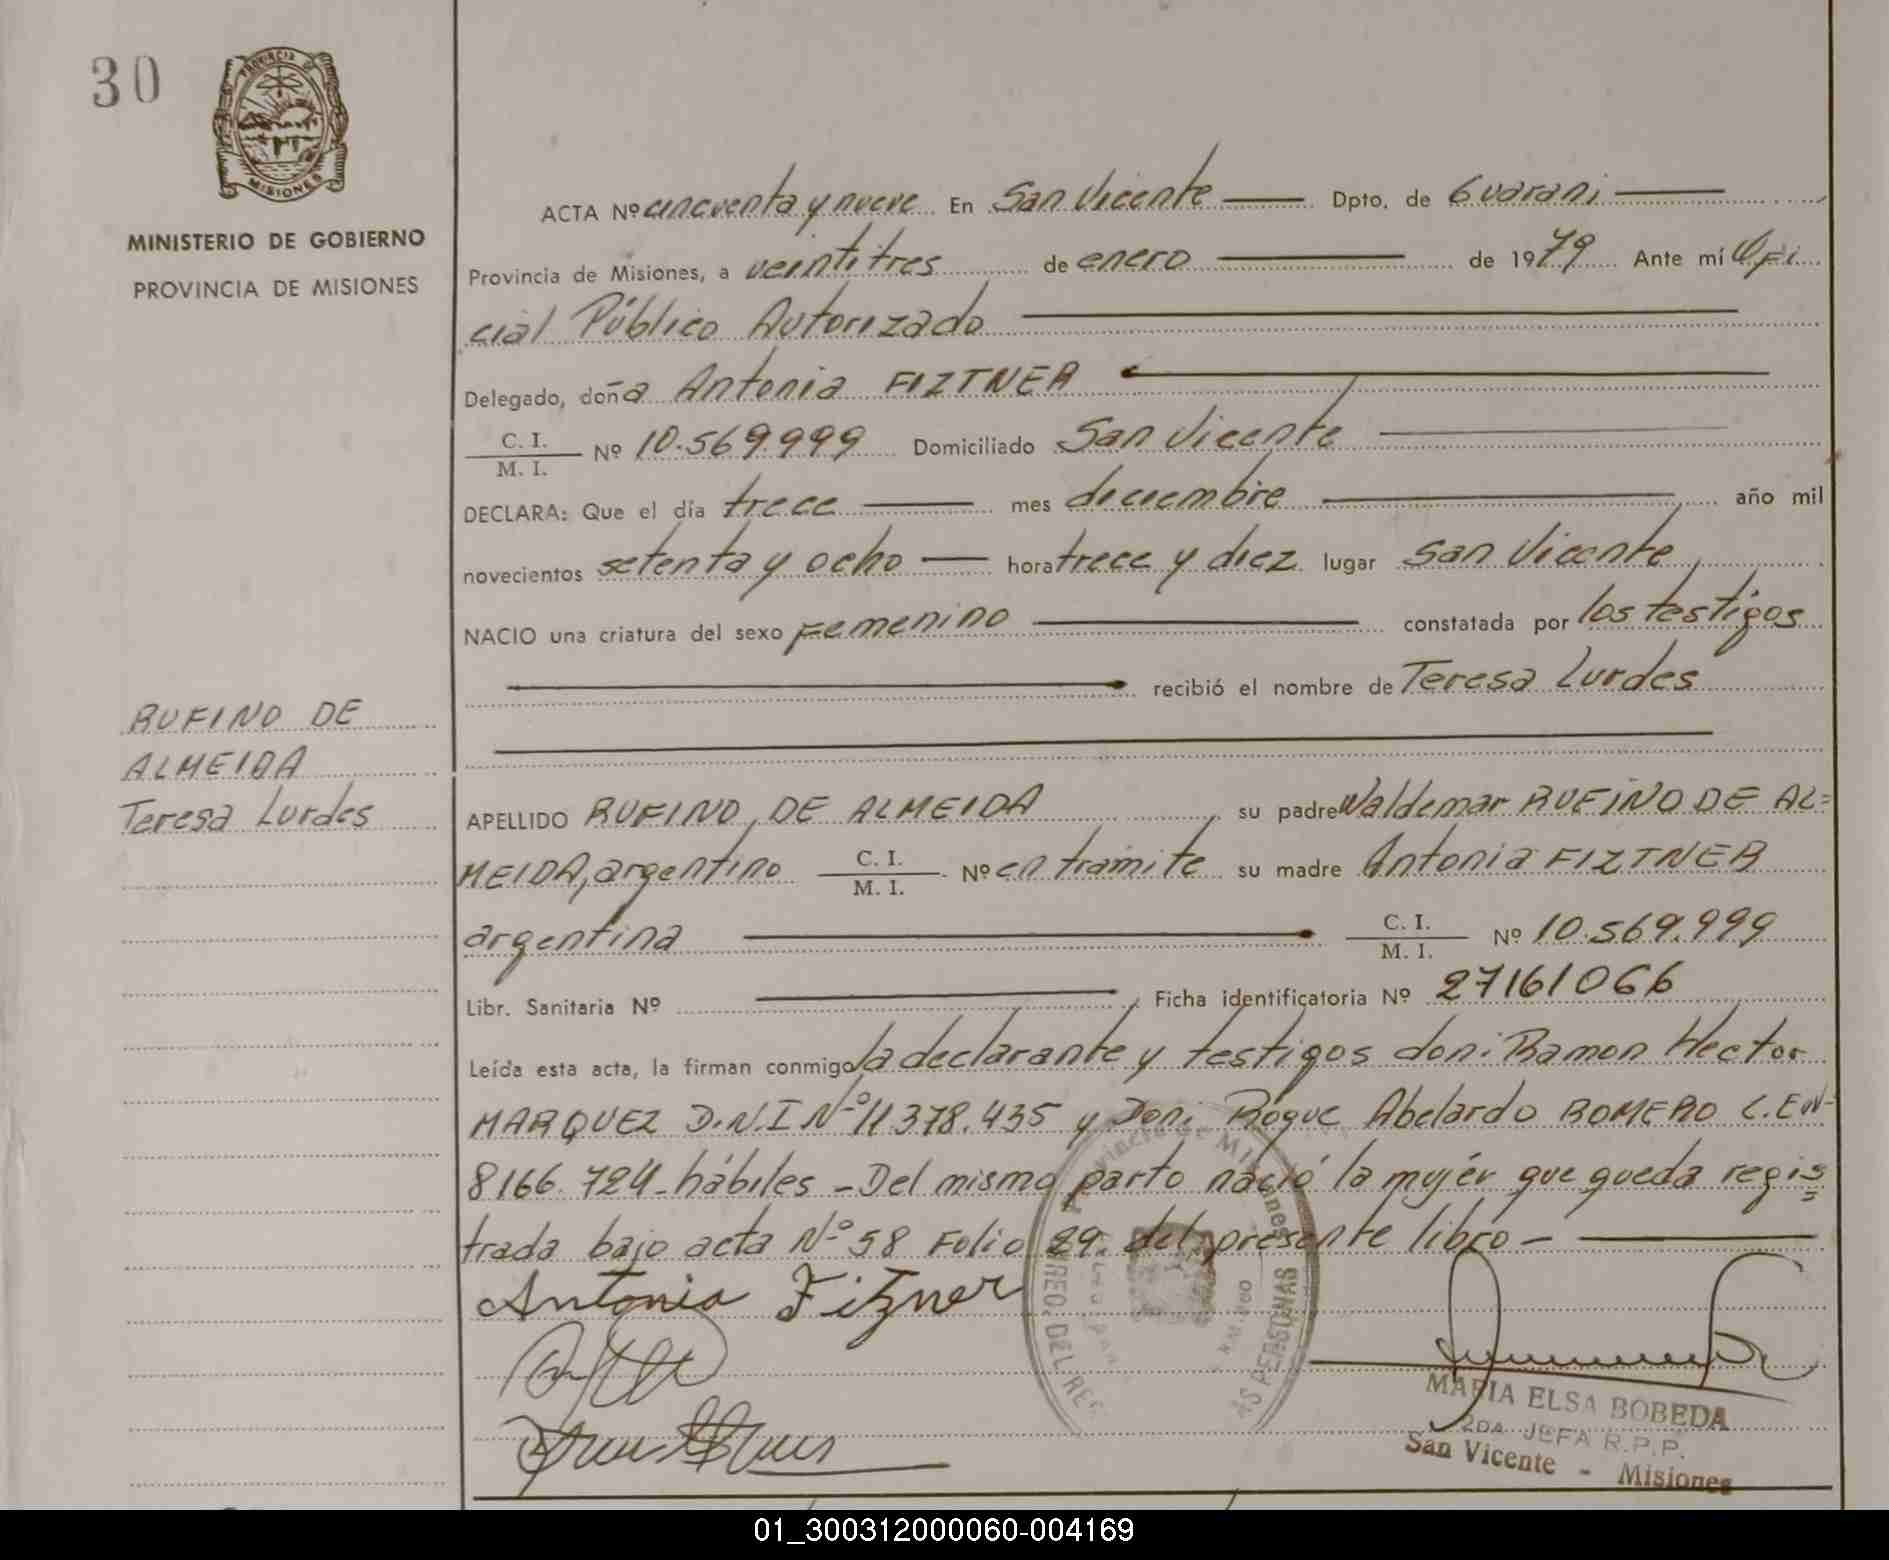 30
PROVINCIA DE
MISIONES
MINISTERIO DE GOBIERNO
PROVINCIA DE MISIONES
ACTA Nº cincuenta y nueve En San Vicente Dpto. de Guarani
Provincia de Misiones, a veintitres de enero de 1979 Ante mí Ofi
cial Público Autorizado
Delegado, doña Antonia FIZTNER
C. I.
M. I. Nº 10.569.999 Domiciliado San Vicente
DECLARA: Que el día trece mes diciembre año mil
novecientos setenta y ocho hora trece y diez lugar San Vicente
NACIO una criatura del sexo Femenino constatada por los testigos
recibió el nombre de Teresa Lurdes
RUFINO DE
ALMEIDA
Teresa Lurdes
APELLIDO RUFINO DE ALMEIDA su padre Waldemar RUFINO DE AL=
MEIDA, argentino C. I. M. I. Nº en tramite su madre Antonia FIZTNER
argentina C. I. M. I. Nº 10.569.999
Libr. Sanitaria Nº Ficha identificatoria Nº 27161066
Leída esta acta, la firman conmigo la declarante y testigos don: Ramon Hector
MARQUEZ D.N.I Nº 11.378.435 y Don: Roque Abelardo ROMERO C.E Nº
8166.724 - hábiles - Del mismo parto nació la mujér que queda regis=
trada bajo acta Nº 58 Folio 29 del presente libro -
Antonia Fitzner
Provincia de Misiones
DEL REG. AS PERSONAS
MARIA ELSA BOBEDA
2DA. JEFA R.P.P.
San Vicente - Misiones
01_300312000060-004169